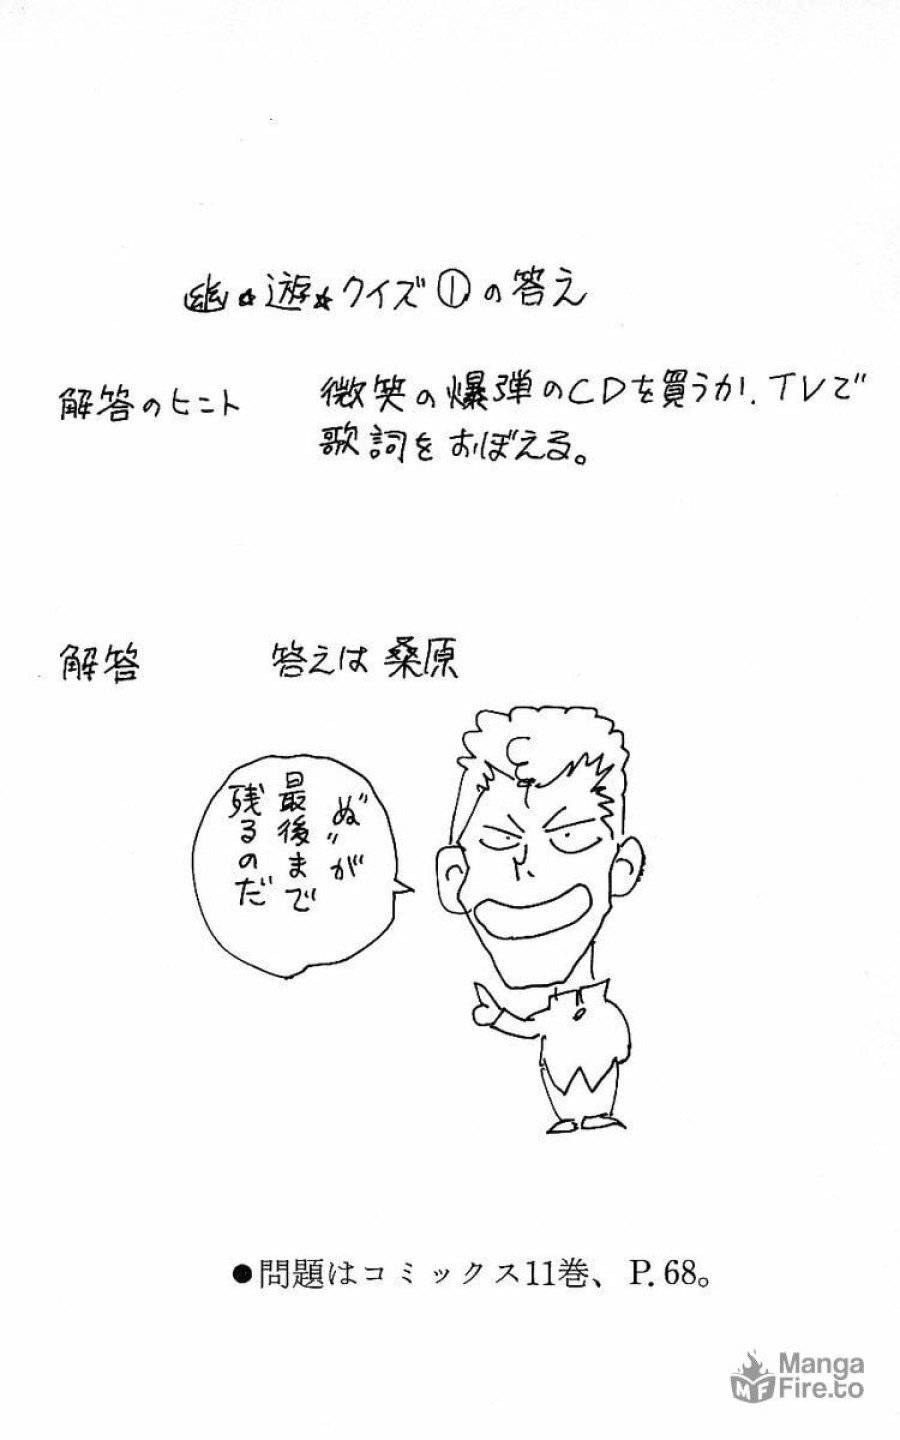 幽☆遊☆クイズ①の答え
解答のヒント
微笑の爆弾のCDを買うか、TVで
歌詞をおぼえる。
解答
答えは桑原
〝ぬ〟が
最後まで
残るのだ
●問題はコミックス11巻、P.68。
Manga
Fire.to
MF